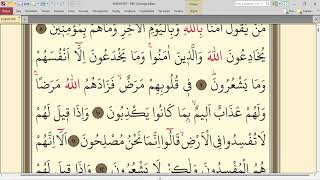 مَنْ يَقُولُ اٰمَنَّا بِاللّٰهِ وَبِالْيَوْمِ الْاٰخِرِ وَمَا هُمْ بِمُؤْمِنِينَۘ ﴿٨﴾
يُخَادِعُونَ اللّٰهَ وَالَّذِينَ اٰمَنُواۚ وَمَا يَخْدَعُونَ اِلَّٓا اَنْفُسَهُمْ
وَمَا يَشْعُرُونَۜ ﴿٩﴾ فِي قُلُوبِهِمْ مَرَضٌۙ فَزَادَهُمُ اللّٰهُ مَرَضًاۚ
وَلَهُمْ عَذَابٌ اَلِيمٌۙ بِمَا كَانُوا يَكْذِبُونَ ﴿١٠﴾ وَاِذَا قِيلَ لَهُمْ
لَا تُفْسِدُوا فِي الْاَرْضِۙ قَالُٓوا اِنَّمَا نَحْنُ مُصْلِحُونَ ﴿١١﴾ اَلَٓا اِنَّهُمْ
هُمُ الْمُفْسِدُونَ وَلٰكِنْ لَا يَشْعُرُونَ ﴿١٢﴾ وَاِذَا قِيلَ لَهُمْ